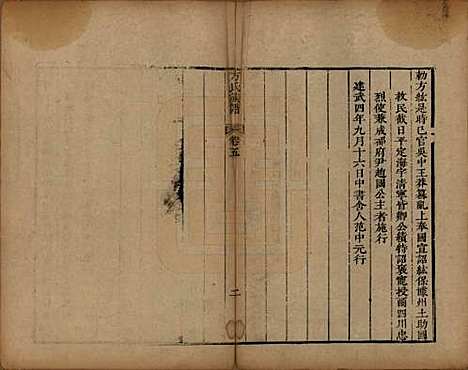 勑方紘是時已官吳中王莽篡亂上奉國宣詔紘保據州土助國
救民截日平定海宇清寧皆卿公績特詔褒寵授爾四川忠
烈使兼成都府尹趙國公主者施行
建武四年九月十六日中書舍人范中元行
方氏族譜
卷五
二